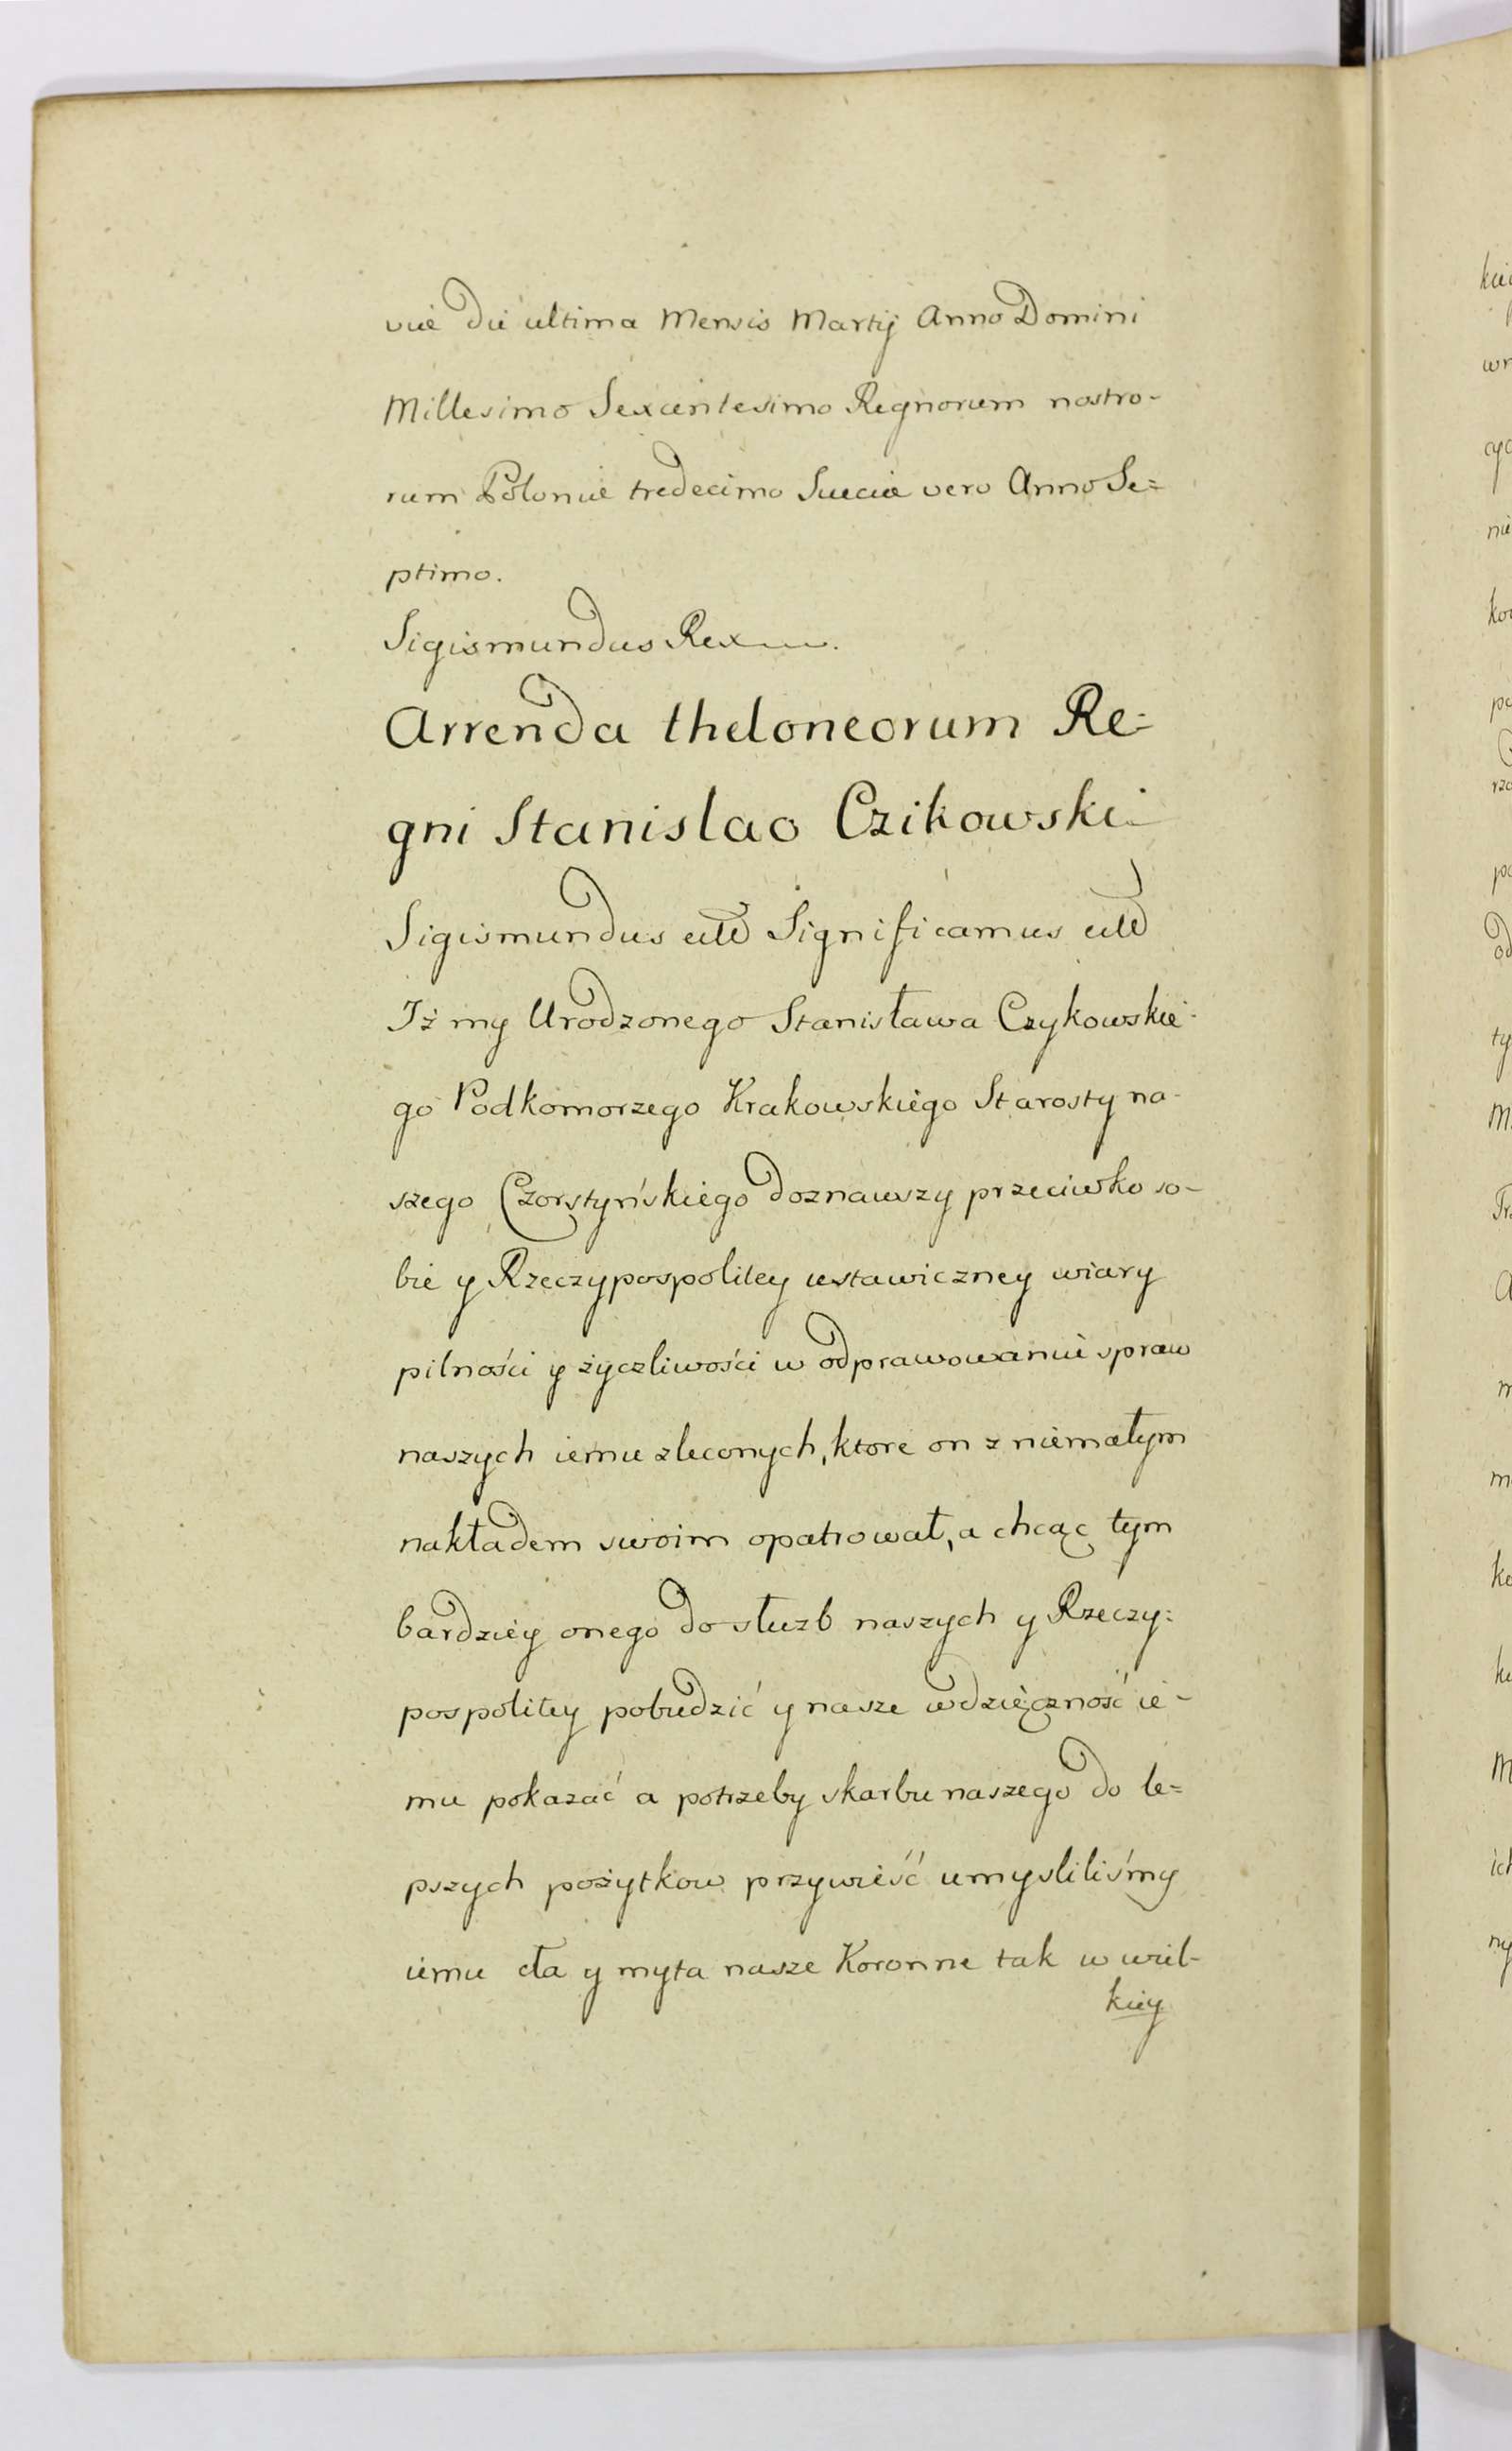 vie die ultima Mensis Martij Anno Domini
Millesimo Sexcentesimo Regnorum nostro-
rum Polonie tredecimo Suecie vero Anno Se=
ptimo.
Sigismundus Rex
Arrenda theloneorum Re=
gni Stanislao Czikowski
Sigismundus etc Significamus etc
Iż my Urodzonego Stanisława Czykowskie-
go Podkomorzego Krakowskiego Starosty na-
szego Czorstyńskiego doznawszy przeciwko so-
bie y Rzeczypospolitey ustawiczney wiary
pilności y życzliwości w odprawowaniu spraw
naszych iemu zleconych, ktore on z niemałym
nakładem swoim opatrował, a chcąc tym
bardziey onego do służb naszych y Rzeczy=
pospolitey pobudzić y nasze wdzięczność ie-
mu pokazać a potrzeby skarbu naszego do le=
pszych pożytkow przywieść umysliliśmy
iemu cła y myta nasze Koronne tak w wiel-
kiey